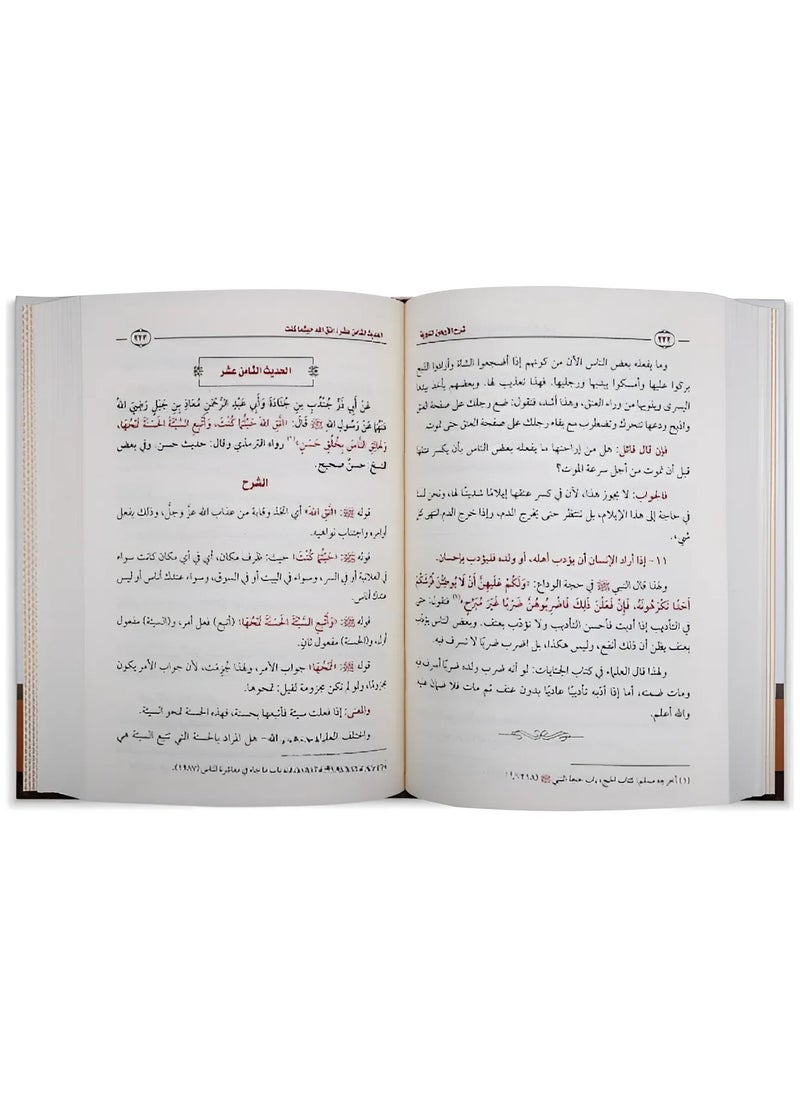 ٢٢٢
شرح الأربعين النووية
وما يفعله بعض الناس الآن من كونهم إذا أضجعوا الشاة وأرادوا الذبح
بركوا عليها وأمسكوا بيديها ورجليها. فهذا تعذيب لها. وبعضهم يأخذ بيدها
اليسرى ويلويها من وراء العنق، وهذا أشد، فنقول: ضع رجلك على صفحة العنق
واذبح ودعها تتحرك وتضطرب مع بقاء رجلك على صفحة العنق حتى تموت
فإن قال قائل: هل من إراحتها ما يفعله بعض الناس بأن يكسر عنقها
قبل أن تموت من أجل سرعة الموت؟
فالجواب: لا يجوز هذا، لأن في كسر عنقها إيلامًا شديدًا لها، ونحن لسنا
في حاجة إلى هذا الإيلام، بل ننتظر حتى يخرج الدم، وإذا خرج الدم انتهى كل
شيء.
١١- إذا أراد الإنسان أن يؤدب أهله، أو ولده فليؤدب بإحسان.
ولهذا قال النبي ﷺ في حجة الوداع: «وَلَكُمْ عَلَيهِنَّ أَنْ لَا يُوطِئْنَ فُرُشَكُمْ
أَحَدًا تَكْرَهُونَهُ، فَإِنْ فَعَلْنَ ذَلِكَ فَاضْرِبُوهُنَّ ضَرْبًا غَيرَ مُبَرِّحٍ»(١) فنقول: حتى
في التأديب إذا أدبت فأحسن التأديب ولا تؤدب بعنف. وبعض الناس يؤدب
بعنف يظن أن ذلك أنفع، وليس هكذا، بل اضرب ضربًا لا تسرف فيه.
ولهذا قال العلماء في كتاب الجنايات: لو أنه ضرب ولده ضربًا أسرف فيه
ومات ضمنه، أما إذا أدّبه تأديبًا عاديًا بدون عنف ثم مات فلا ضمان عليه
والله أعلم.
(١) أخرجه مسلم: كتاب الحج، باب حجة النبي ﷺ
الحديث الثامن عشر: اتق الله حيثما كنت
٢٢٣
الحديث الثامن عشر
عَنْ أَبي ذَرٍّ جُنْدُبِ بنِ جُنَادَةَ وَأَبي عَبْدِ الرَّحْمَنِ مُعَاذِ بنِ جَبَلٍ رَضِيَ اللهُ
عَنْهُمَا عَنْ رَسُولِ اللهِ ﷺ قَالَ: «اتَّقِ اللهَ حَيْثُمَا كُنْتَ، وَأَتْبِعِ السَّيِّئَةَ الحَسَنَةَ تَمْحُهَا،
وَخَالِقِ النَّاسَ بِخُلُقٍ حَسَنٍ»(١) رواه الترمذي وقال: حديث حسن. وفي بعض
النسخ: حسنٌ صحيح.
الشرح
قوله ﷺ: «اتَّقِ اللهَ» أي اتخذ وقاية من عذاب الله عزّ وجلّ، وذلك بفعل
أوامره واجتناب نواهيه.
قوله ﷺ: «حَيْثُمَا كُنْتَ» حيث: ظرف مكان، أي في أي مكان كانت سواء
في العلانية أو في السر، وسواء في البيت أو في السوق، وسواء عندك أناس أو ليس
عندك أناس.
قوله ﷺ: «وَأَتْبِعِ السَّيِّئَةَ الحَسَنَةَ تَمْحُهَا»: (أتبع) فعل أمر، و(السيئة) مفعول
أول، و(الحسنة) مفعول ثانٍ.
قوله ﷺ: «تَمْحُهَا» جواب الأمر، ولهذا جُزِمت، لأن جواب الأمر يكون
مجزومًا، ولو لم تكن مجزومة لقيل: تمحوها.
والمعنى: إذا فعلت سيئة فأتبعها بحسنة، فهذه الحسنة تمحو السيئة.
واختلف العلماء الله- هل المراد بالحسنة التي تتبع السيئة هي
باب ما جاء في معاشرة الناس (١٩٨٧).